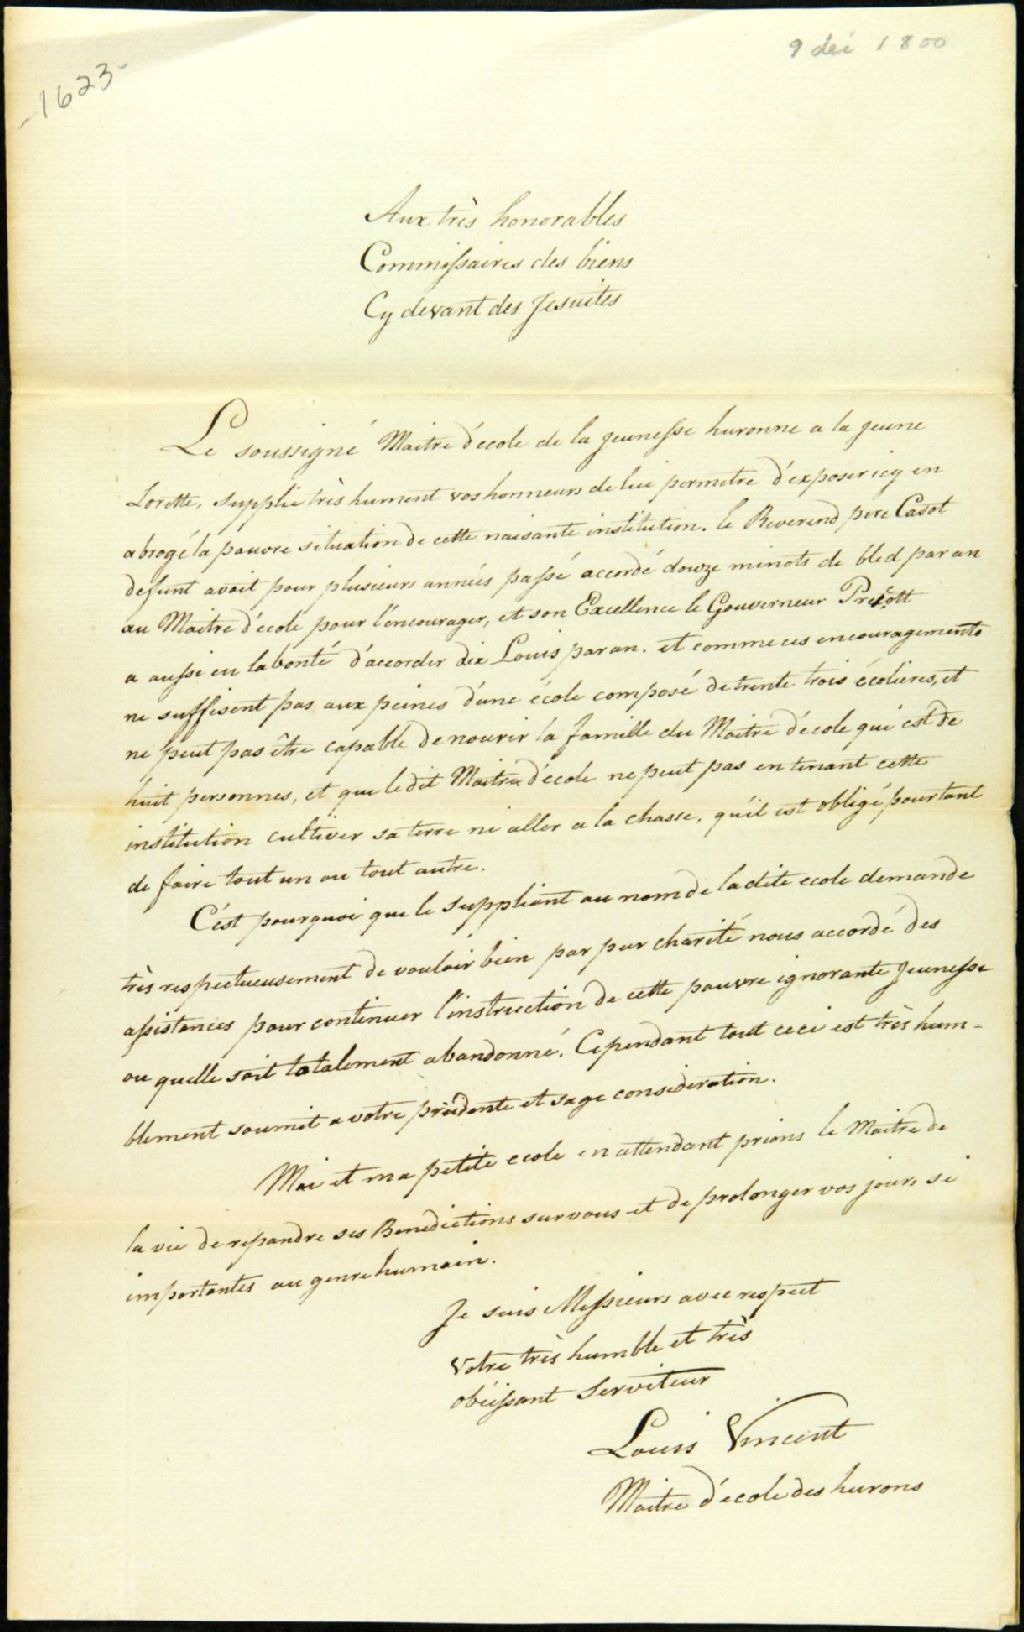 9 dec 1800
-1623-
Aux très honorables
Commissaires des biens
Cy devant des Jesuites
Le soussigné Maitre d'école de la jeunesse huronne a la jeune
Lorette, supplie très hument vos honneurs de lui permetre d'exposer icy en
abregé la pauvre situation de cette naisante institution. le Reverend pere Casot
defunt avoit pour plusieurs annés passé accordé douze minots de bled par an
au Maitre d'école pour l'encourager, et son Excellence le Gouverneur Prescott
a aussi eu la bonté d'accorder dix Louis par an. et comme ces encouragements
ne suffisent pas aux peines d'une école composé de trente trois écolières, et
ne peut pas être capable de nourir la famille du Maitre d'école qui est de
huit personnes, et que le dit Maitre d'école ne peut pas en tenant cette
institution cultiver sa terre ni aller a la chasse. qu'il est obligé pourtant
de faire tout un ou tout autre.
C'est pourquoi que le suppliant au nom de la dite ecole demande
très respectueusement de vouloir bien par pur charité nous accordé des
assistances pour continuer l'instruction de cette pauvre ignorante jeunesse
ou quelle soit totalement abandonné. Cependant tout ceci est très hum-
blement soumit a votre prudente et sage consideration.
Moi et ma petite ecole en attendant prions le Maitre de
la vie de repandre ses Benedictions sur vous et de prolonger vos jours si
importantes au genre humain.
Je suis Messieurs avec respect
Votre très humble et très
obéissant Serviteur
Louis Vincent
Maitre d'école des hurons